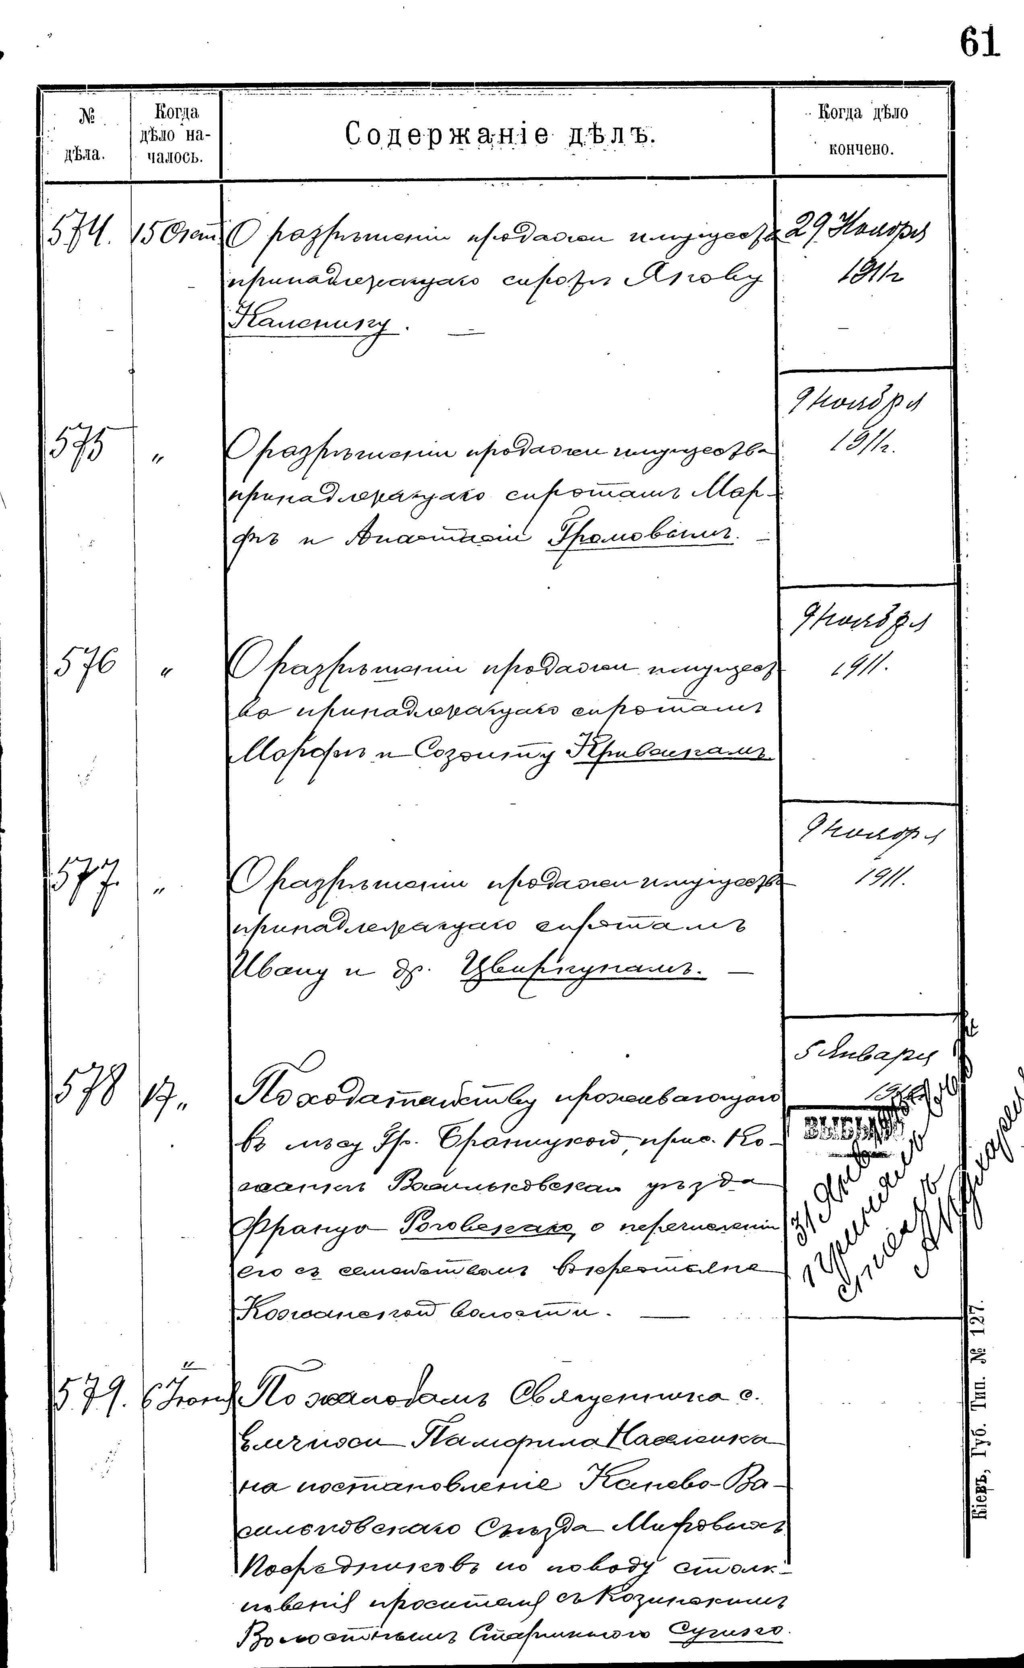 61
№ дѣла.
Когда дѣло началось.
Содержаніе дѣлъ.
Когда дѣло кончено.
574. 15 Окт. О разрѣшеніи продажи имущества 29 Ноября
принадлежащаго сиротѣ Якову 1911 г
Каленику.
9 Ноября
575 " О разрѣшеніи продажи имущества 1911 г.
принадлежащаго сиротамъ Мар-
фѣ и Анастасіи Громовымъ.
9 Ноября
576 " О разрѣшеніи продажи имущест- 1911.
ва принадлежащаго сиротамъ
Марфѣ и Созонту
9 Ноября
577. " О разрѣшеніи продажи имуществ 1911.
принадлежащаго сиротамъ
Ивану и др. Цвиркунамъ.
5 Января
578 17 " По ходатайству проживающаго
въ лѣсу Гр. Браницкой, прис. Ко-
жанки Васильковскаго уѣзда
Францо Роговскаго, о перечисленіи
его съ семействомъ въ крестьяне
Кожанской волости.
ВЫБЫЛО
31 Янв
принялъ
"
579. 6 Іюня По жалобамъ Священника с.
Памфила
на постановленіе Канево-Ва-
сильковскаго Съѣзда Мировыхъ
Посредниковъ по поводу столк-
новенія просителя съ Козинскимъ
Волостнымъ Старшиною
Кіевъ, Губ. Тип. № 127.